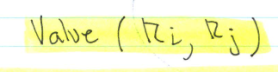 Value (Ri, Rj)